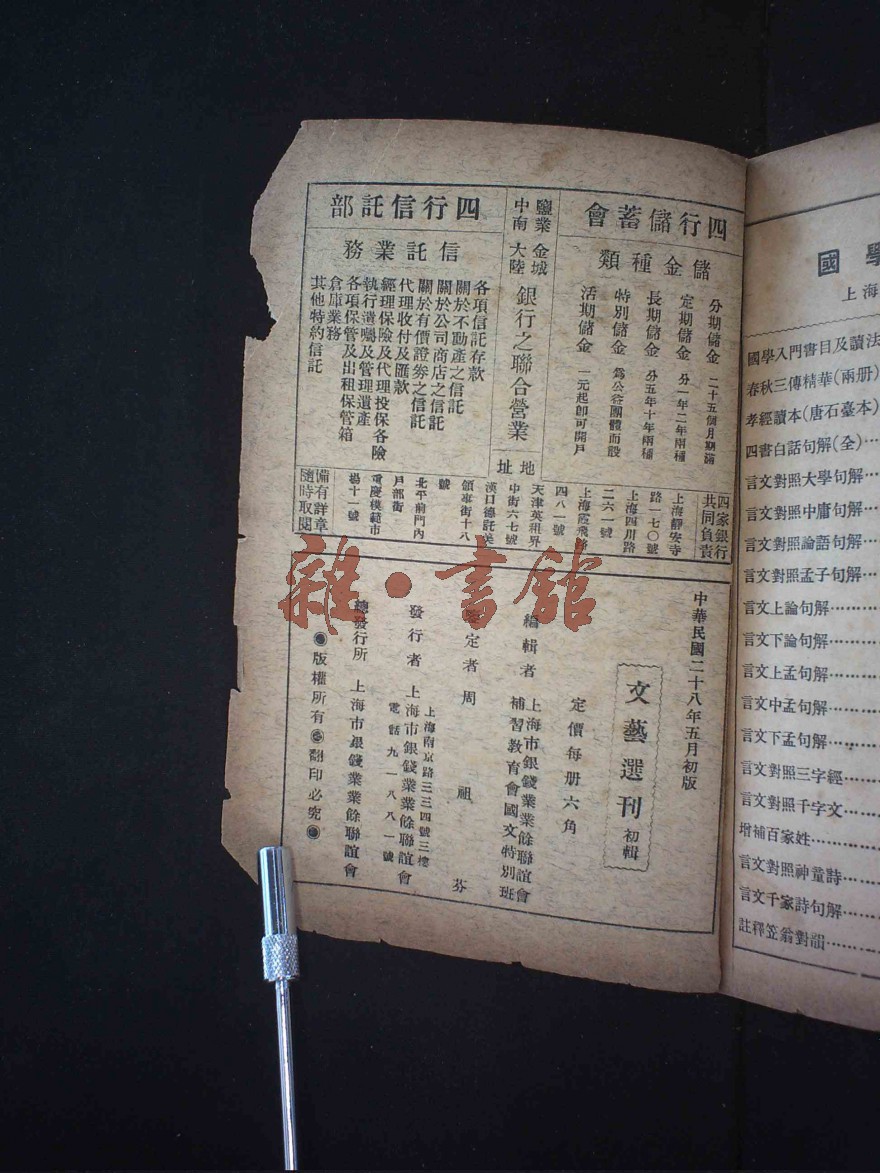 四行儲蓄會
儲金種類
分期儲金 二十五個月期滿
定期儲金 分一年二年兩種
長期儲金 分五年十年兩種
特別儲金 爲公益團體而設
活期儲金 一元起卽可開戶
鹽業 金城
中南 大陸
銀行之聯合營業
四行信託部
信託業務
各項信託存款
關於不動產之信託
關於公司商店之信託
關於有價證券之信託
代理收付及匯款
經理保險及代理投保各險
執行遺囑及管理遺產
各項保管及出租保管箱
倉庫業務
其他特約信託
四家銀行
共同負責
地址
上海靜安寺
路一七〇號
上海四川路
二六一號
上海霞飛路
四八一號
天津英租界
中街六七號
漢口德託美
領事街十八
號
北平前門內
戶部街
重慶模範市
場十一號
備有詳章
隨時取閱
中華民國二十八年五月初版
文藝選刊 初輯
定價每册六角
編輯者 上海市銀錢業業餘聯誼會
補習教育會國文特別班
定者 周祖芬
發行者 上海市銀錢業業餘聯誼會
上海南京路三三四號三樓
電話九一八八一號
總發行所 上海市銀錢業業餘聯誼會
版權所有 翻印必究
雜·書館
國學
上海
國學入門書目及讀法
春秋三傳精華(兩册)
孝經讀本(唐石臺本)
四書白話句解(全)…
言文對照大學句解…
言文對照中庸句解…
言文對照論語句解…
言文對照孟子句解…
言文上論句解………
言文下論句解………
言文上孟句解………
言文中孟句解………
言文下孟句解………
言文對照三字經……
言文對照千字文……
增補百家姓…………
言文對照神童詩……
言文千家詩句解……
註釋笠翁對韻………